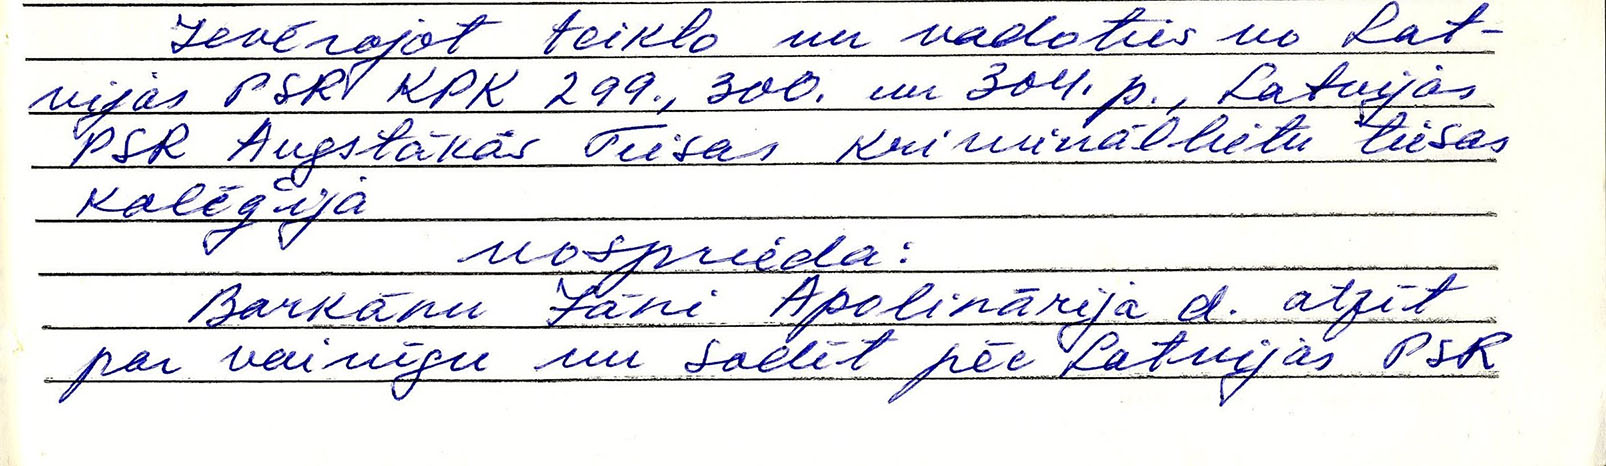 Ievērojot teikto un vadoties no Lat-
vijas PSR KPK 299., 300. un 304. p., Latvijas
PSR Augstākās Tiesas Krimināllietu tiesas
kolēģija
nosprieda:
Barkānu Jāni Apolinārija d. atzīt
par vainīgu un sodīt pēc Latvijas PSR